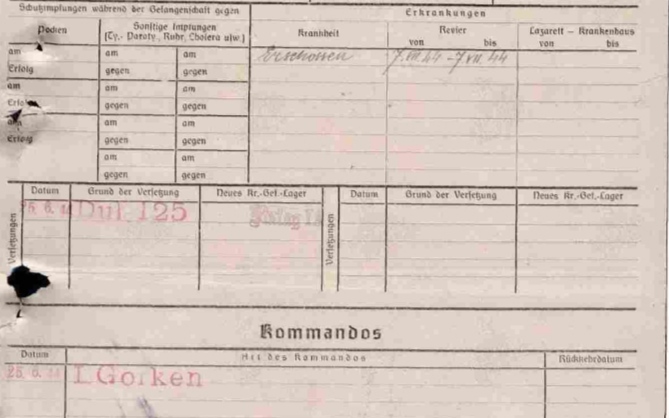 Schutzimpfungen während der Gefangenschaft gegen
Erkrankungen
Pocken
Sonstige Impfungen
(Ty.- Paraty., Ruhr, Cholera usw.)
Krankheit
Revier
von bis
Lazarett – Krankenhaus
von bis
am am am
Erschossen 7.VII.44 - 7.VII.44
Erfolg gegen gegen
am am am
Erfolg gegen gegen
am am am
Erfolg gegen gegen
am am
gegen gegen
Versetzungen
Datum Grund der Versetzung Neues Kr.-Gef.-Lager
Versetzungen
Datum Grund der Versetzung Neues Kr.-Gef.-Lager
25. 6. 44 Dul 125
Kommandos
Datum Art des Kommandos Rückkehrdatum
25. 6. 44 I. Gorken